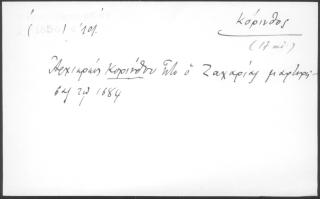 Κόρινθος
(17 αἰ)
Ἀρχιερεὺς Κορίνθου ἦτο ὁ Ζαχαρίας μαρτυρή-
σας τῷ 1684